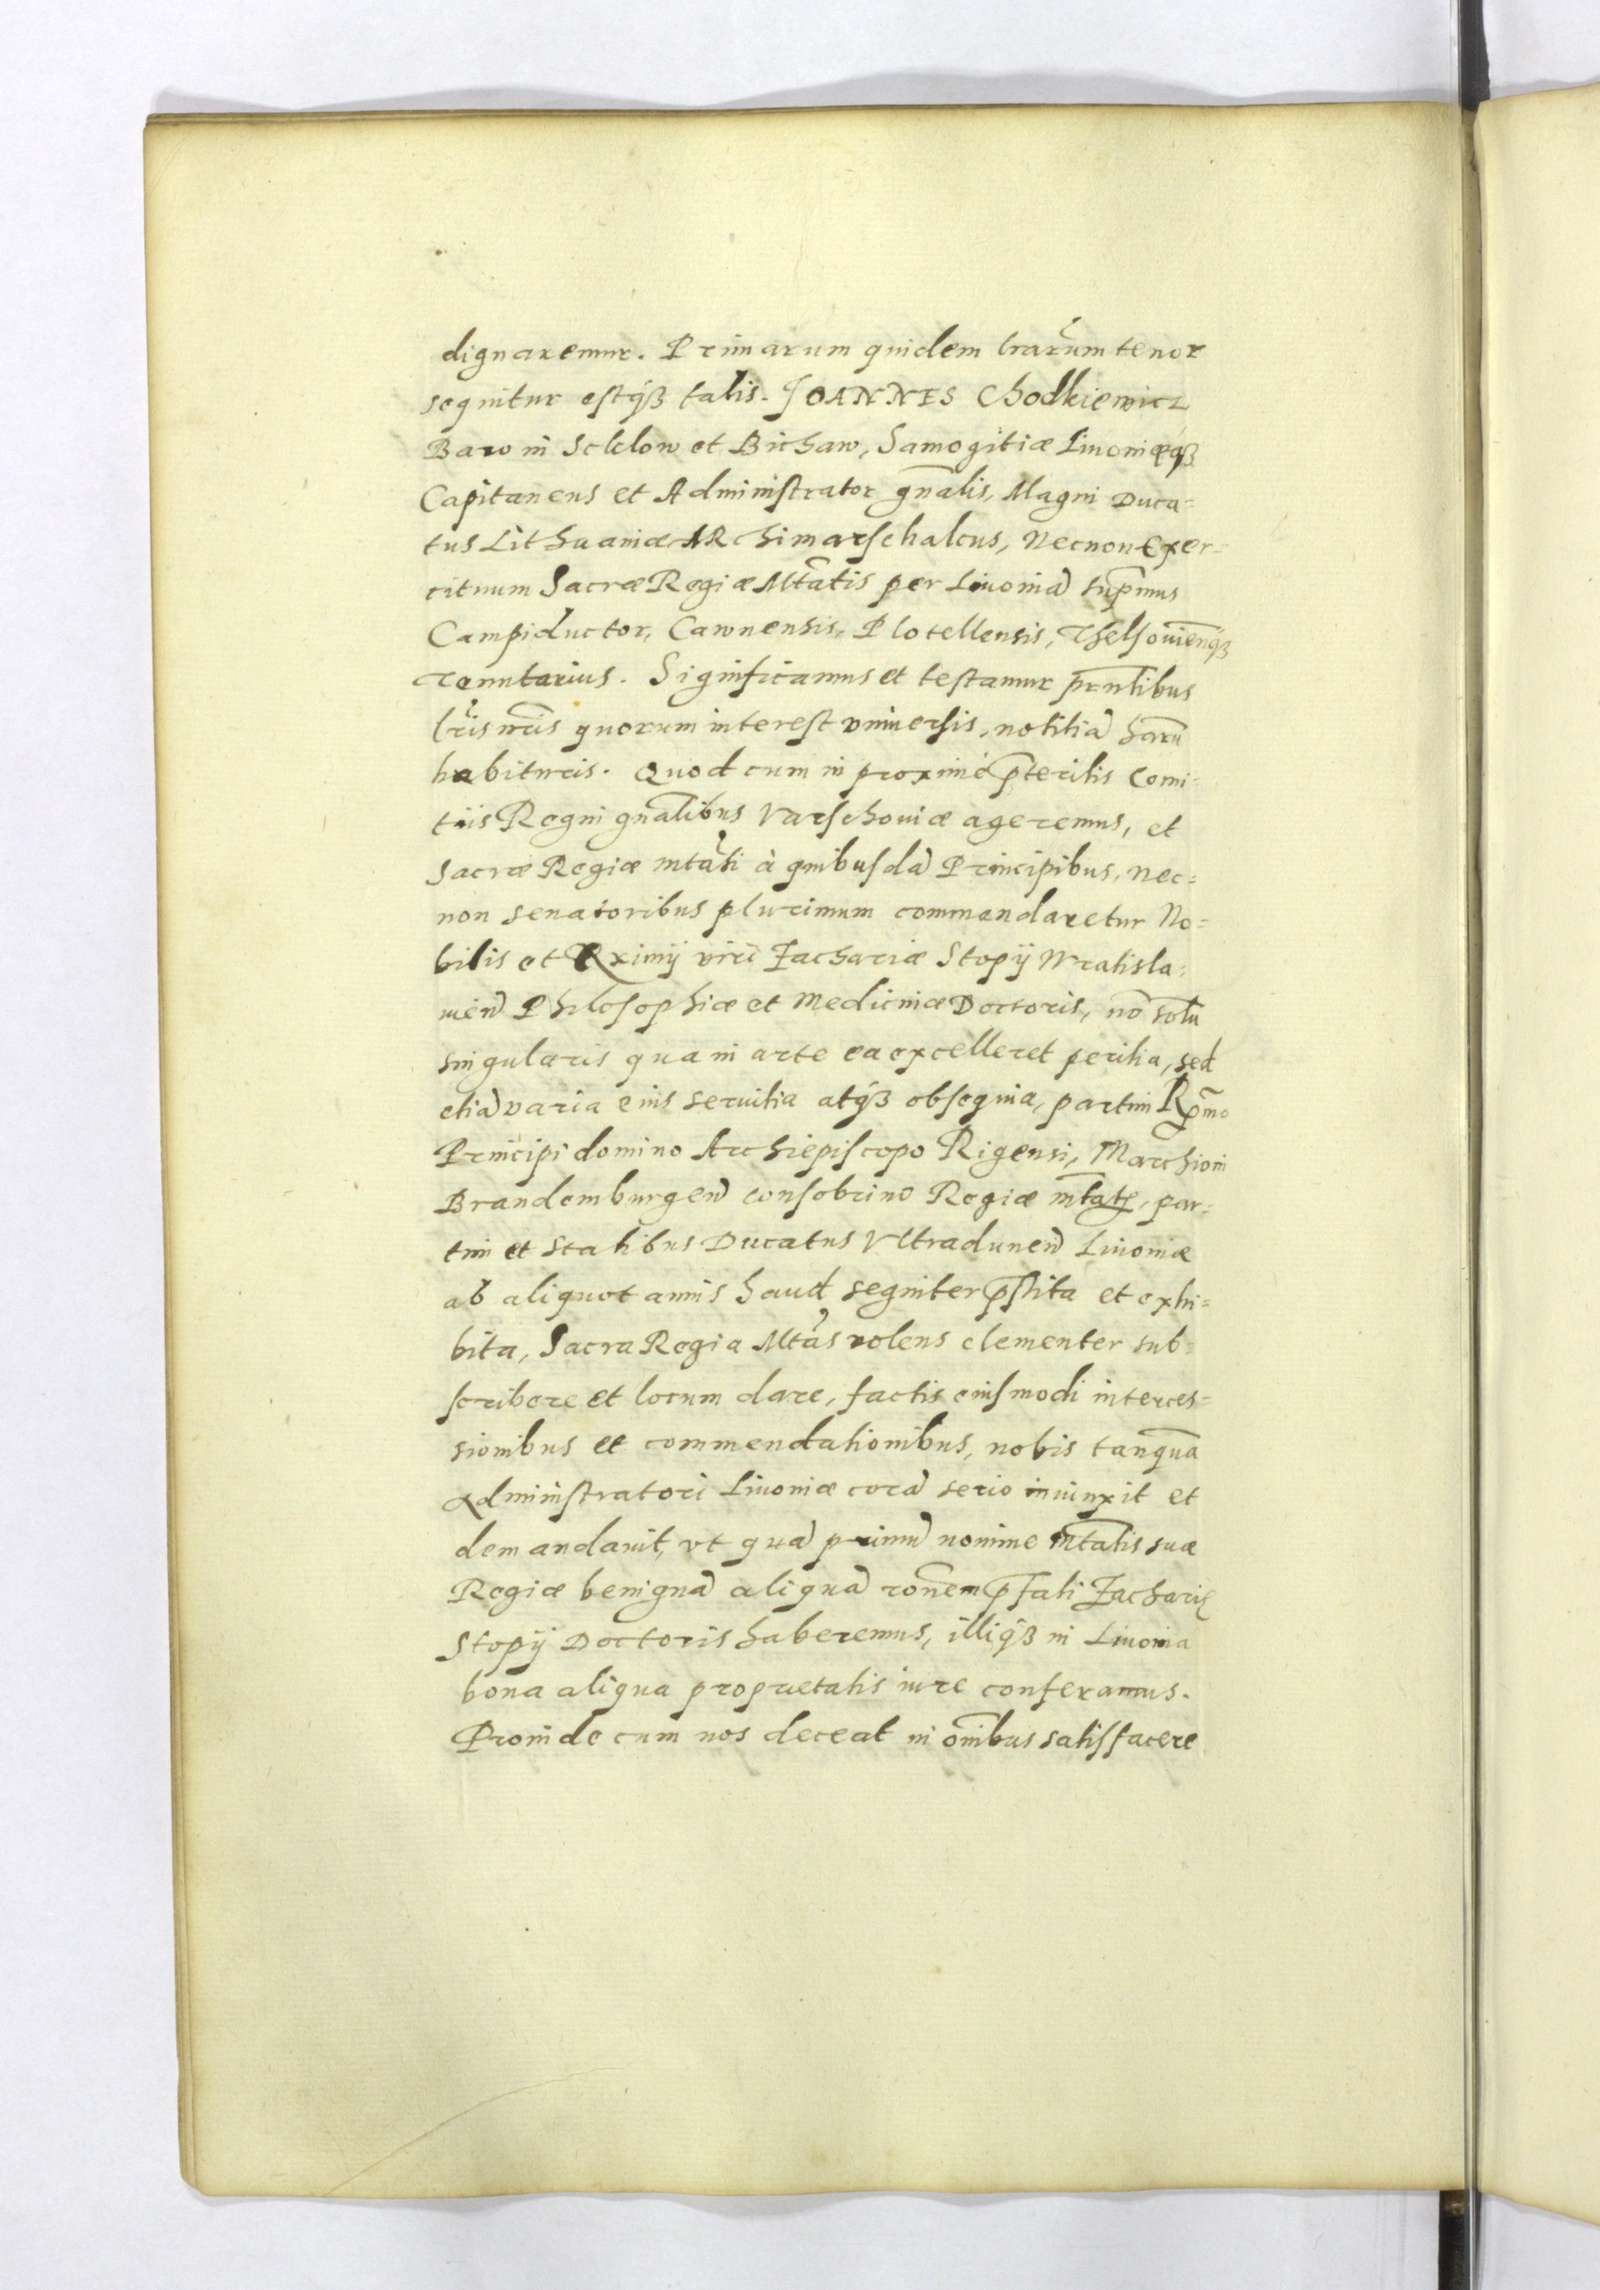 dignaremur. Primarum quidem lrarum tenor
sequitur estq́ꝫ talis. JOANNES Chodkiewicz
Baro in Scklow et Bichaw, Samogitiæ Liuoniæq́ꝫ
Capitaneus et Administrator gn̄alis, Magni Duca-
tus Lithuaniæ ARchimarschalcus, Necnon Exer-
cituum Sacræ Regiæ Mtātis per Liuoniā sup̄mus
Campiductor, Cawnensis, Plotellensis, Thelsouien̄q́ꝫ
Tenutarius. Significamus et testamur p̄ntibus
lr̄is nr̄is quorum interest vniuersis, notitiā harū
habituris. Quod cum in proximè p̄teritis Comi-
tiis Regni gn̄alibus Varschouiæ ageremus, et
Sacræ Regiæ mtāti à quibusdā Principibus, nec-
non senatoribus plurimum commandaretur No-
bilis et Eximij viri Zachariæ Stopij Wratisla-
uien̄ Philosophiæ et Medicinæ Doctoris, nō solū
singularis qua in arte ea excelleret peritia, sed
etiā varia eius seruitia atq́ꝫ obsequia, partim Rp̄mo
Principi domino Archiepiscopo Rigensi, Marchioni
Brandemburgen̄ consobrino Regiæ mtātꝭ, par-
tim et statibus Ducatus Vltradunen̄ Liuoniæ
ab aliquot annis haud segniter p̄stita et exhi-
bita, Sacra Regia Mtās volens clementer sub-
scribere et locum dare, factis eiusmodi interces-
sionibus et commendationibus, nobis tanquā
Administratori Liuoniæ corā serio iniunxit et
demandauit, vt quā primū nomine mtātis suæ
Regiæ benignā aliquā rōnem p̄fati Zacharię
Stopij Doctoris haberemus, illiq́ꝫ in Liuonia
bona aliqua proprietatis iure conferamus.
Proinde cum nos deceat in ōnibus satisfacere